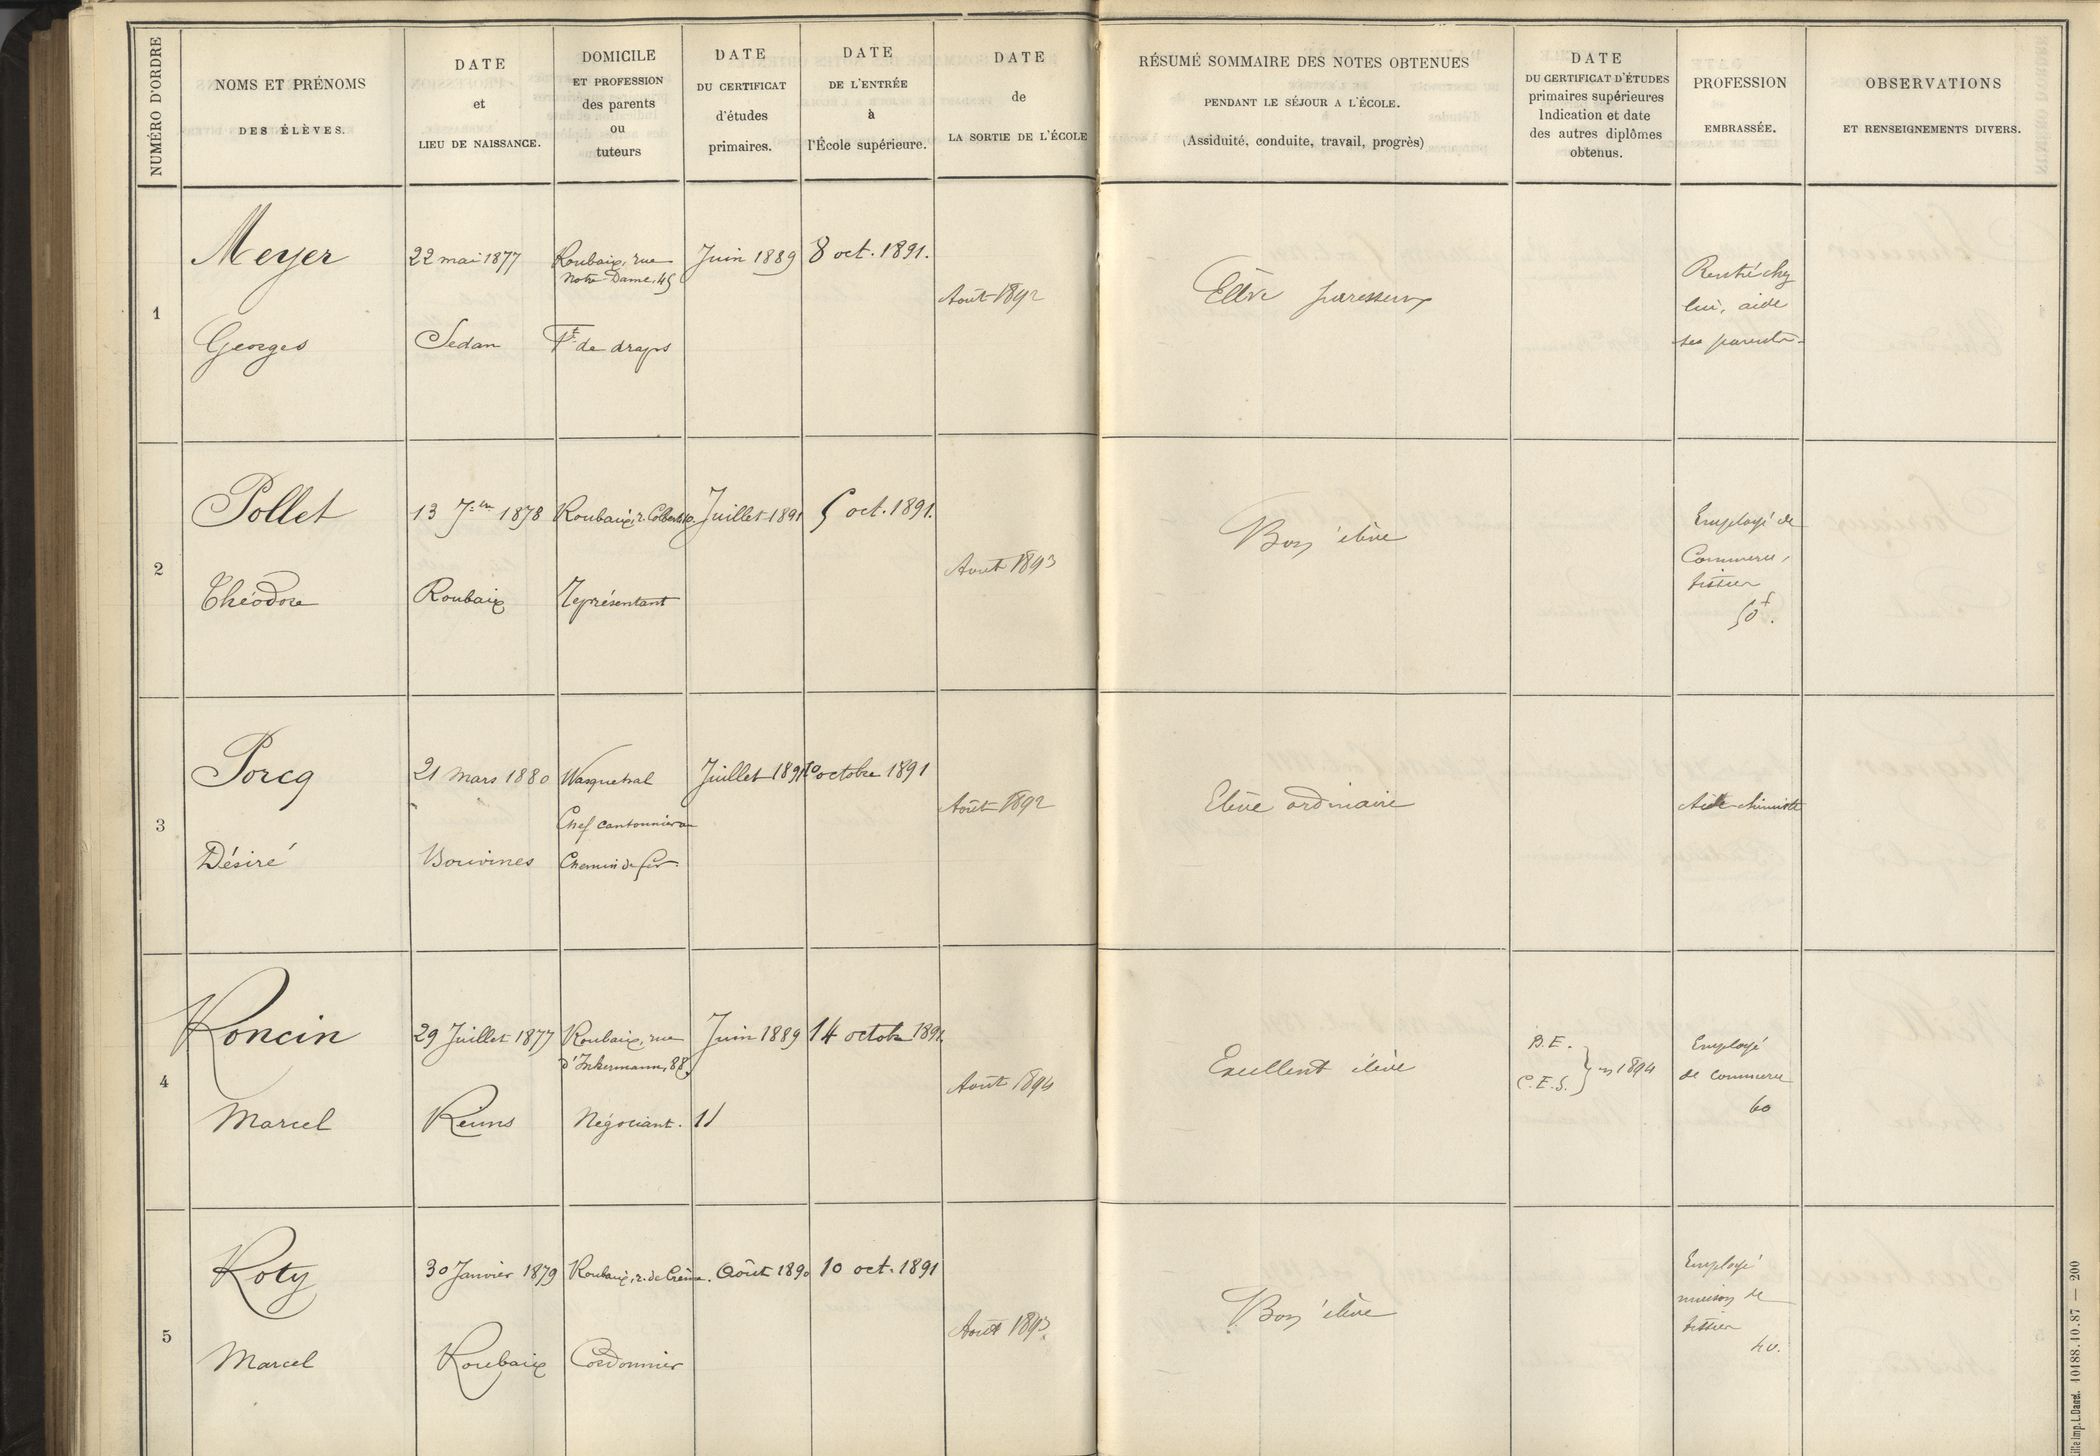 NUMÉRO D'ORDRE
NOMS ET PRÉNOMS
DES ÉLÈVES.
DATE
et
LIEU DE NAISSANCE.
DOMICILE
ET PROFESSION
des parents
ou
tuteurs
DATE
DU CERTIFICAT
d'études
primaires.
DATE
DE L'ENTRÉE
à
l'École supérieure.
DATE
de
LA SORTIE DE L'ÉCOLE
RÉSUMÉ SOMMAIRE DES NOTES OBTENUES
PENDANT LE SÉJOUR A L'ÉCOLE.
(Assiduité, conduite, travail, progrès)
DATE
DU CERTIFICAT D'ÉTUDES
primaires supérieures
Indication et date
des autres diplômes
obtenus.
PROFESSION
EMBRASSÉE.
OBSERVATIONS
ET RENSEIGNEMENTS DIVERS.
1
Meyer
Georges
22 mai 1877
Sedan
Roubaix, rue
Notre Dame, 45
Ft de draps
Juin 1889
8 oct. 1891.
Août 1892
Elève paresseux
Rentré chez
lui, aide
ses parents
2
Pollet
Théodore
13 7bre 1878
Roubaix
Roubaix, r. Colbert
Représentant
Juillet 1891
5 oct. 1891.
Aout 1893
Bon élève
Employé de
Commerce,
tissier
50f.
3
Porcq
Désiré
21 mars 1880
Bouvines
Wasquehal
Chef cantonnier au
Chemin de fer.
Juillet 1891
octobre 1891
Août 1892
Elève ordinaire
Aide-chimiste
4
Roncin
Marcel
29 Juillet 1877
Reims
Roubaix, rue
d'Inkermann, 88
Négociant.
Juin 1889
14 octobre 1891.
Août 1894
Excellent élève
B.E.
C.E.S. } en 1894
Employé
de commerce
60
5
Roty
Marcel
30 Janvier 1879
Roubaix
Roubaix, r. de
Cordonnier
Août 1890
10 oct. 1891
Août 1893
Bon élève
Employé
maison de
tissier
40.
Lille Imp. L. Danel. 10188.10.87 — 200